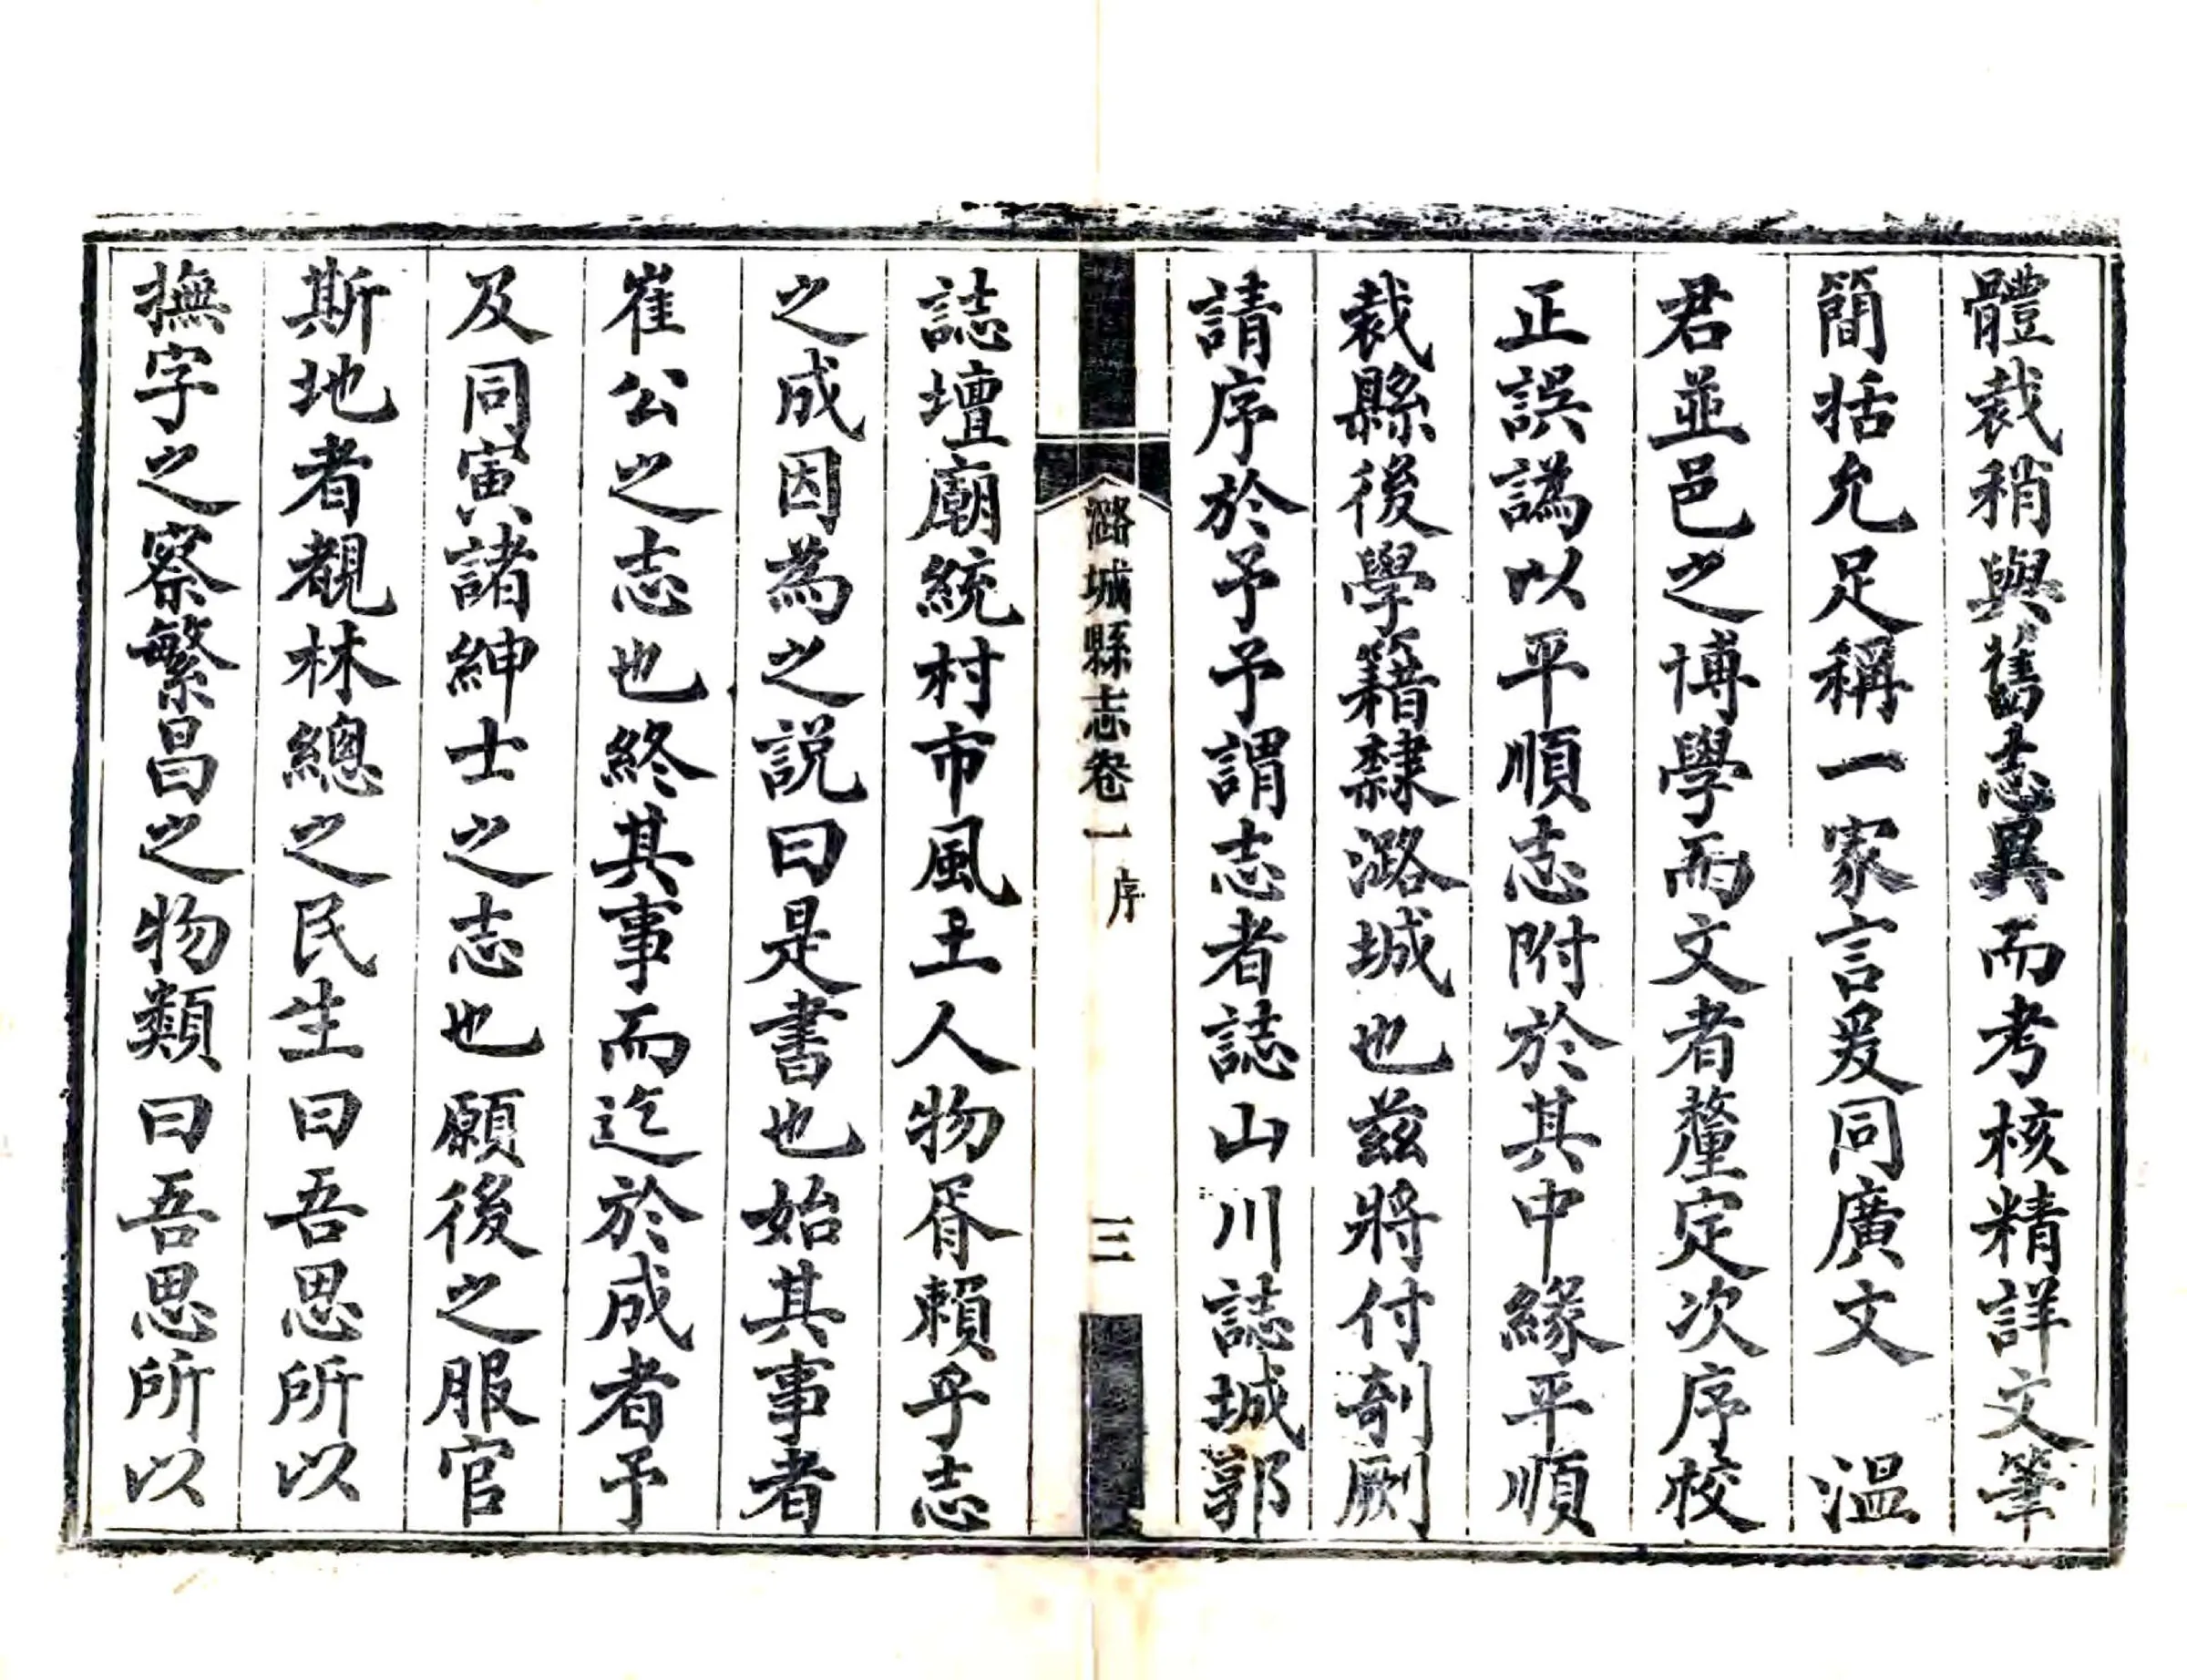 體裁稍與舊志異而考核精詳文筆
簡括允足稱一家言爰同廣文　溫
君並邑之博學而文者釐定次序校
正誤譌以平順志附於其中緣平順
裁縣後學籍隸潞城也茲將付剞劂
請序於予予謂志者誌山川誌城郭
潞城縣志卷一　序　三
誌壇廟統村市風土人物胥賴乎志
之成因為之說曰是書也始其事者
崔公之志也終其事而迄於成者予
及同寅諸紳士之志也願後之服官
斯地者覩林總之民生曰吾思所以
撫字之察繁昌之物類曰吾思所以